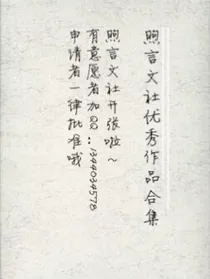 照言文社优秀作品合集
照言文社开张啦～
有意愿者加QQ：1344034578
申请者一律批准哦